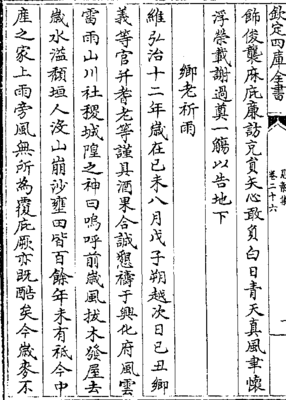 欽定四庫全書
卷二十六
飾俊襲庥庇廉訪克貧矢心敢負白日青天真風聿懷
浮榮載謝過奠一觴以告地下
鄉老祈雨
維弘治十二年歲在己未八月戊子朔越次日己丑鄉
義等官并耆老等謹具酒果合誠懇禱于興化府風雲
雷雨山川社稷城隍之神曰嗚呼前歲風拔木發屋去
歲水溢頹垣人沒山崩沙壅田皆百餘年未有祗今中
產之家上雨旁風無所為覆庇厥亦既酷矣今歲麥不